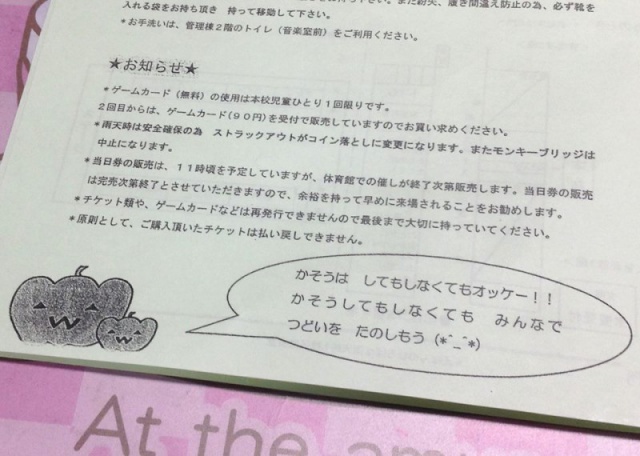 入れる袋をお持ち頂き　持って移動して下さい。また紛失、履き間違え防止の為、必ず靴を
＊お手洗いは、管理棟２階のトイレ（音楽室前）をご利用ください。
★お知らせ★
＊ゲームカード（無料）の使用は本校児童ひとり１回限りです。
２回目からは、ゲームカード(９０円)を受付で販売していますのでお買い求めください。
＊雨天時は安全確保の為　ストラックアウトがコイン落としに変更になります。またモンキーブリッジは
中止になります。
＊当日券の販売は、１１時頃を予定していますが、体育館での催しが終了次第販売します。当日券の販売
は完売次第終了とさせていただきますので、余裕を持って早めに来場されることをお勧めします。
＊チケット類や、ゲームカードなどは再発行できませんので最後まで大切に持っていてください。
＊原則として、ご購入頂いたチケットは払い戻しできません。
かそうは　してもしなくてもオッケー！！
かそうしてもしなくても　みんなで
つどいを　たのしもう (*^_^*)
At the am